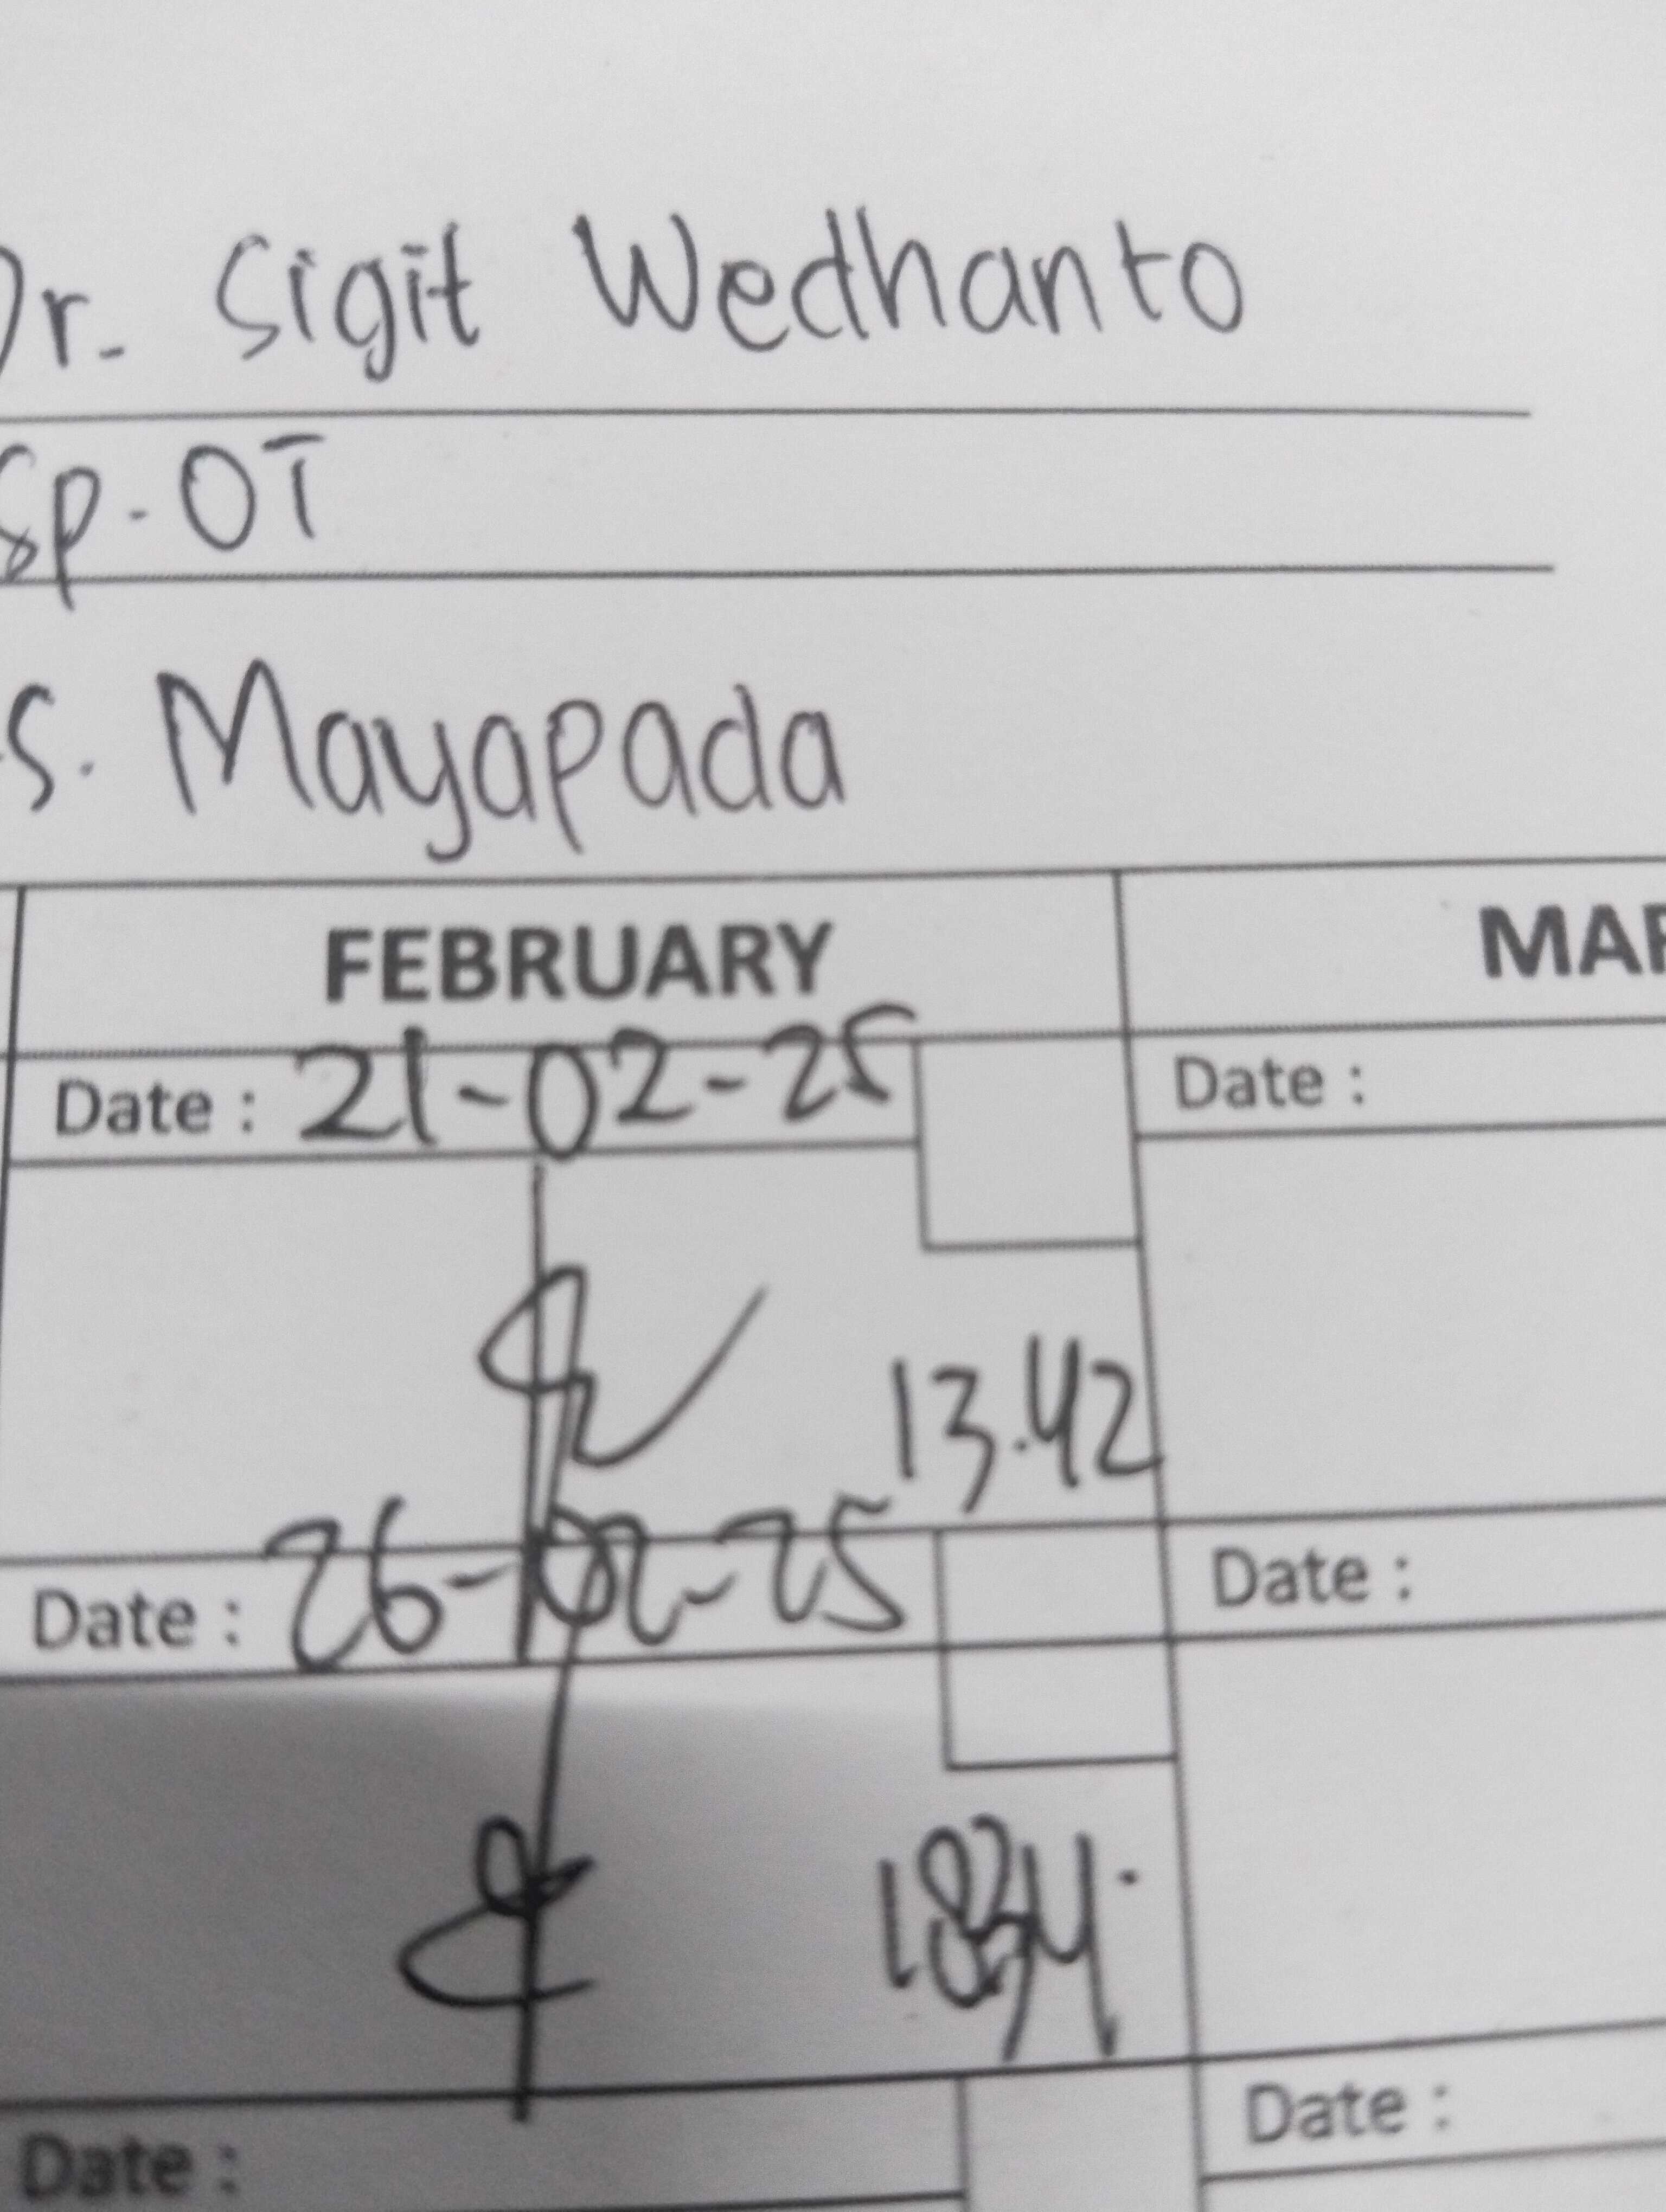 Dr. Sigit Wedhanto
Sp. OT
S. Mayapada
FEBRUARY MAR
Date : 21-02-25 Date :
13.42
Date : 26-02-25 Date :
Date : Date :